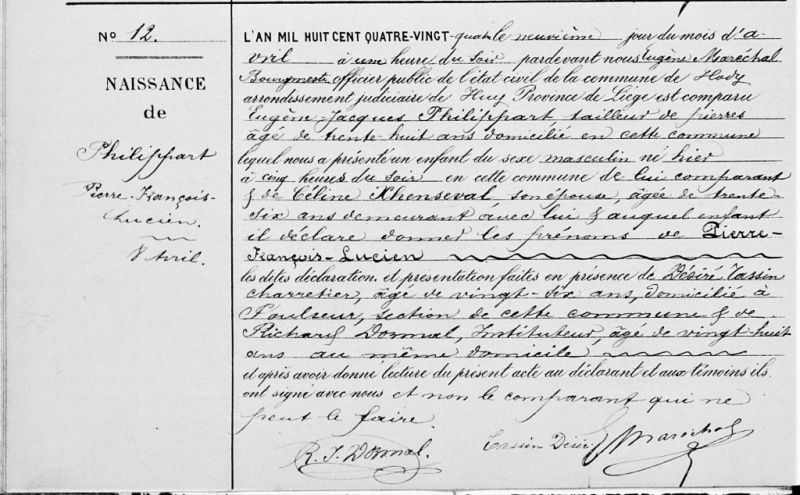 No 12.
NAISSANCE
de
Philippart
Pierre-François-
Lucien.
8 Avril.
L'AN MIL HUIT CENT QUATRE-VINGT-quatre le neuvième jour du mois d'a-
vril à une heure du soir pardevant nous Eugène Maréchal
Bourgmestre officier public de l'état civil de la commune de Hody
arrondissement judiciaire de Huy Province de Liége est comparu
Eugène-Jacques Philippart, tailleur de pierres
âgé de trente-huit ans domicilié en cette commune
lequel nous a présenté un enfant du sexe masculin né hier
à cinq heures du soir en cette commune de lui comparant
& de Céline Khenseval, son épouse, âgée de trente-
six ans demeurant avec lui & auquel enfant
il déclare donner les prénoms de Pierre-
François-Lucien
les dites déclaration et présentation faites en présence de Désiré Tassin
charretier, âgé de vingt-six ans, domicilié à
Poulseur, section de cette commune & de
Richard Dormal, Instituteur, âgé de vingt-huit
ans au même domicile
et après avoir donné lecture du présent acte au déclarant et aux témoins ils
ont signé avec nous et non le comparant qui ne
peut le faire.
R. J. Dormal. Tassin Désiré E Maréchal